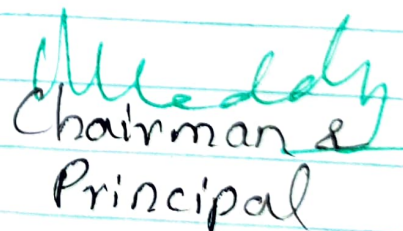 Chairman &
Principal